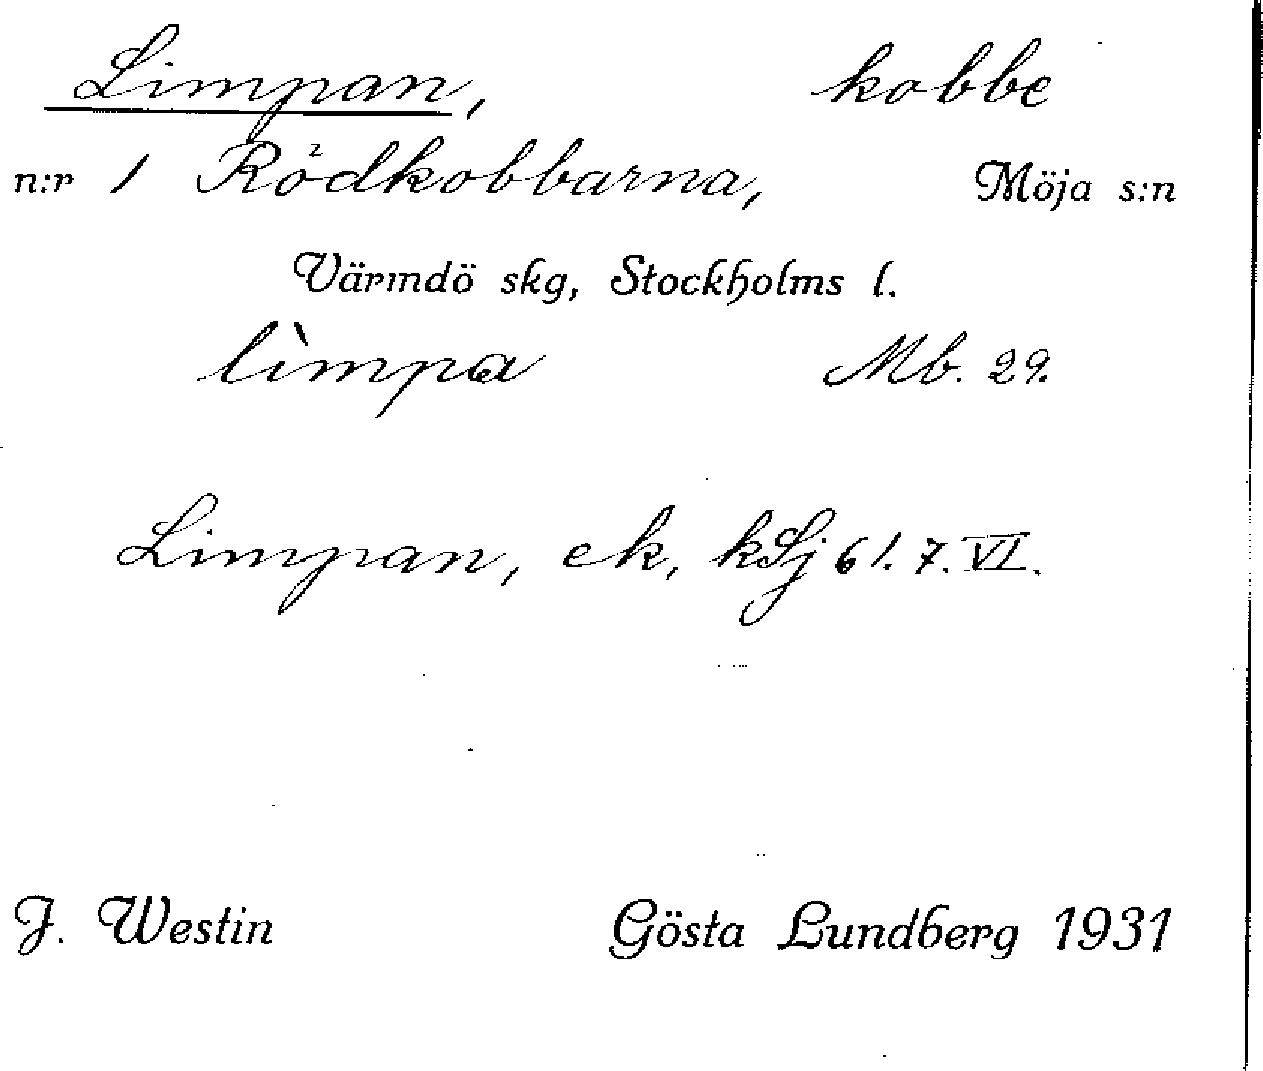 Limpan, kobbe
n:r 1 Rödkobbarna, Möja s:n
Värmdö skg, Stockholms l.
lìmpa Mb. 29.
Limpan, ek, kSj 61. 7. VI.
J. Westin Gösta Lundberg 1931